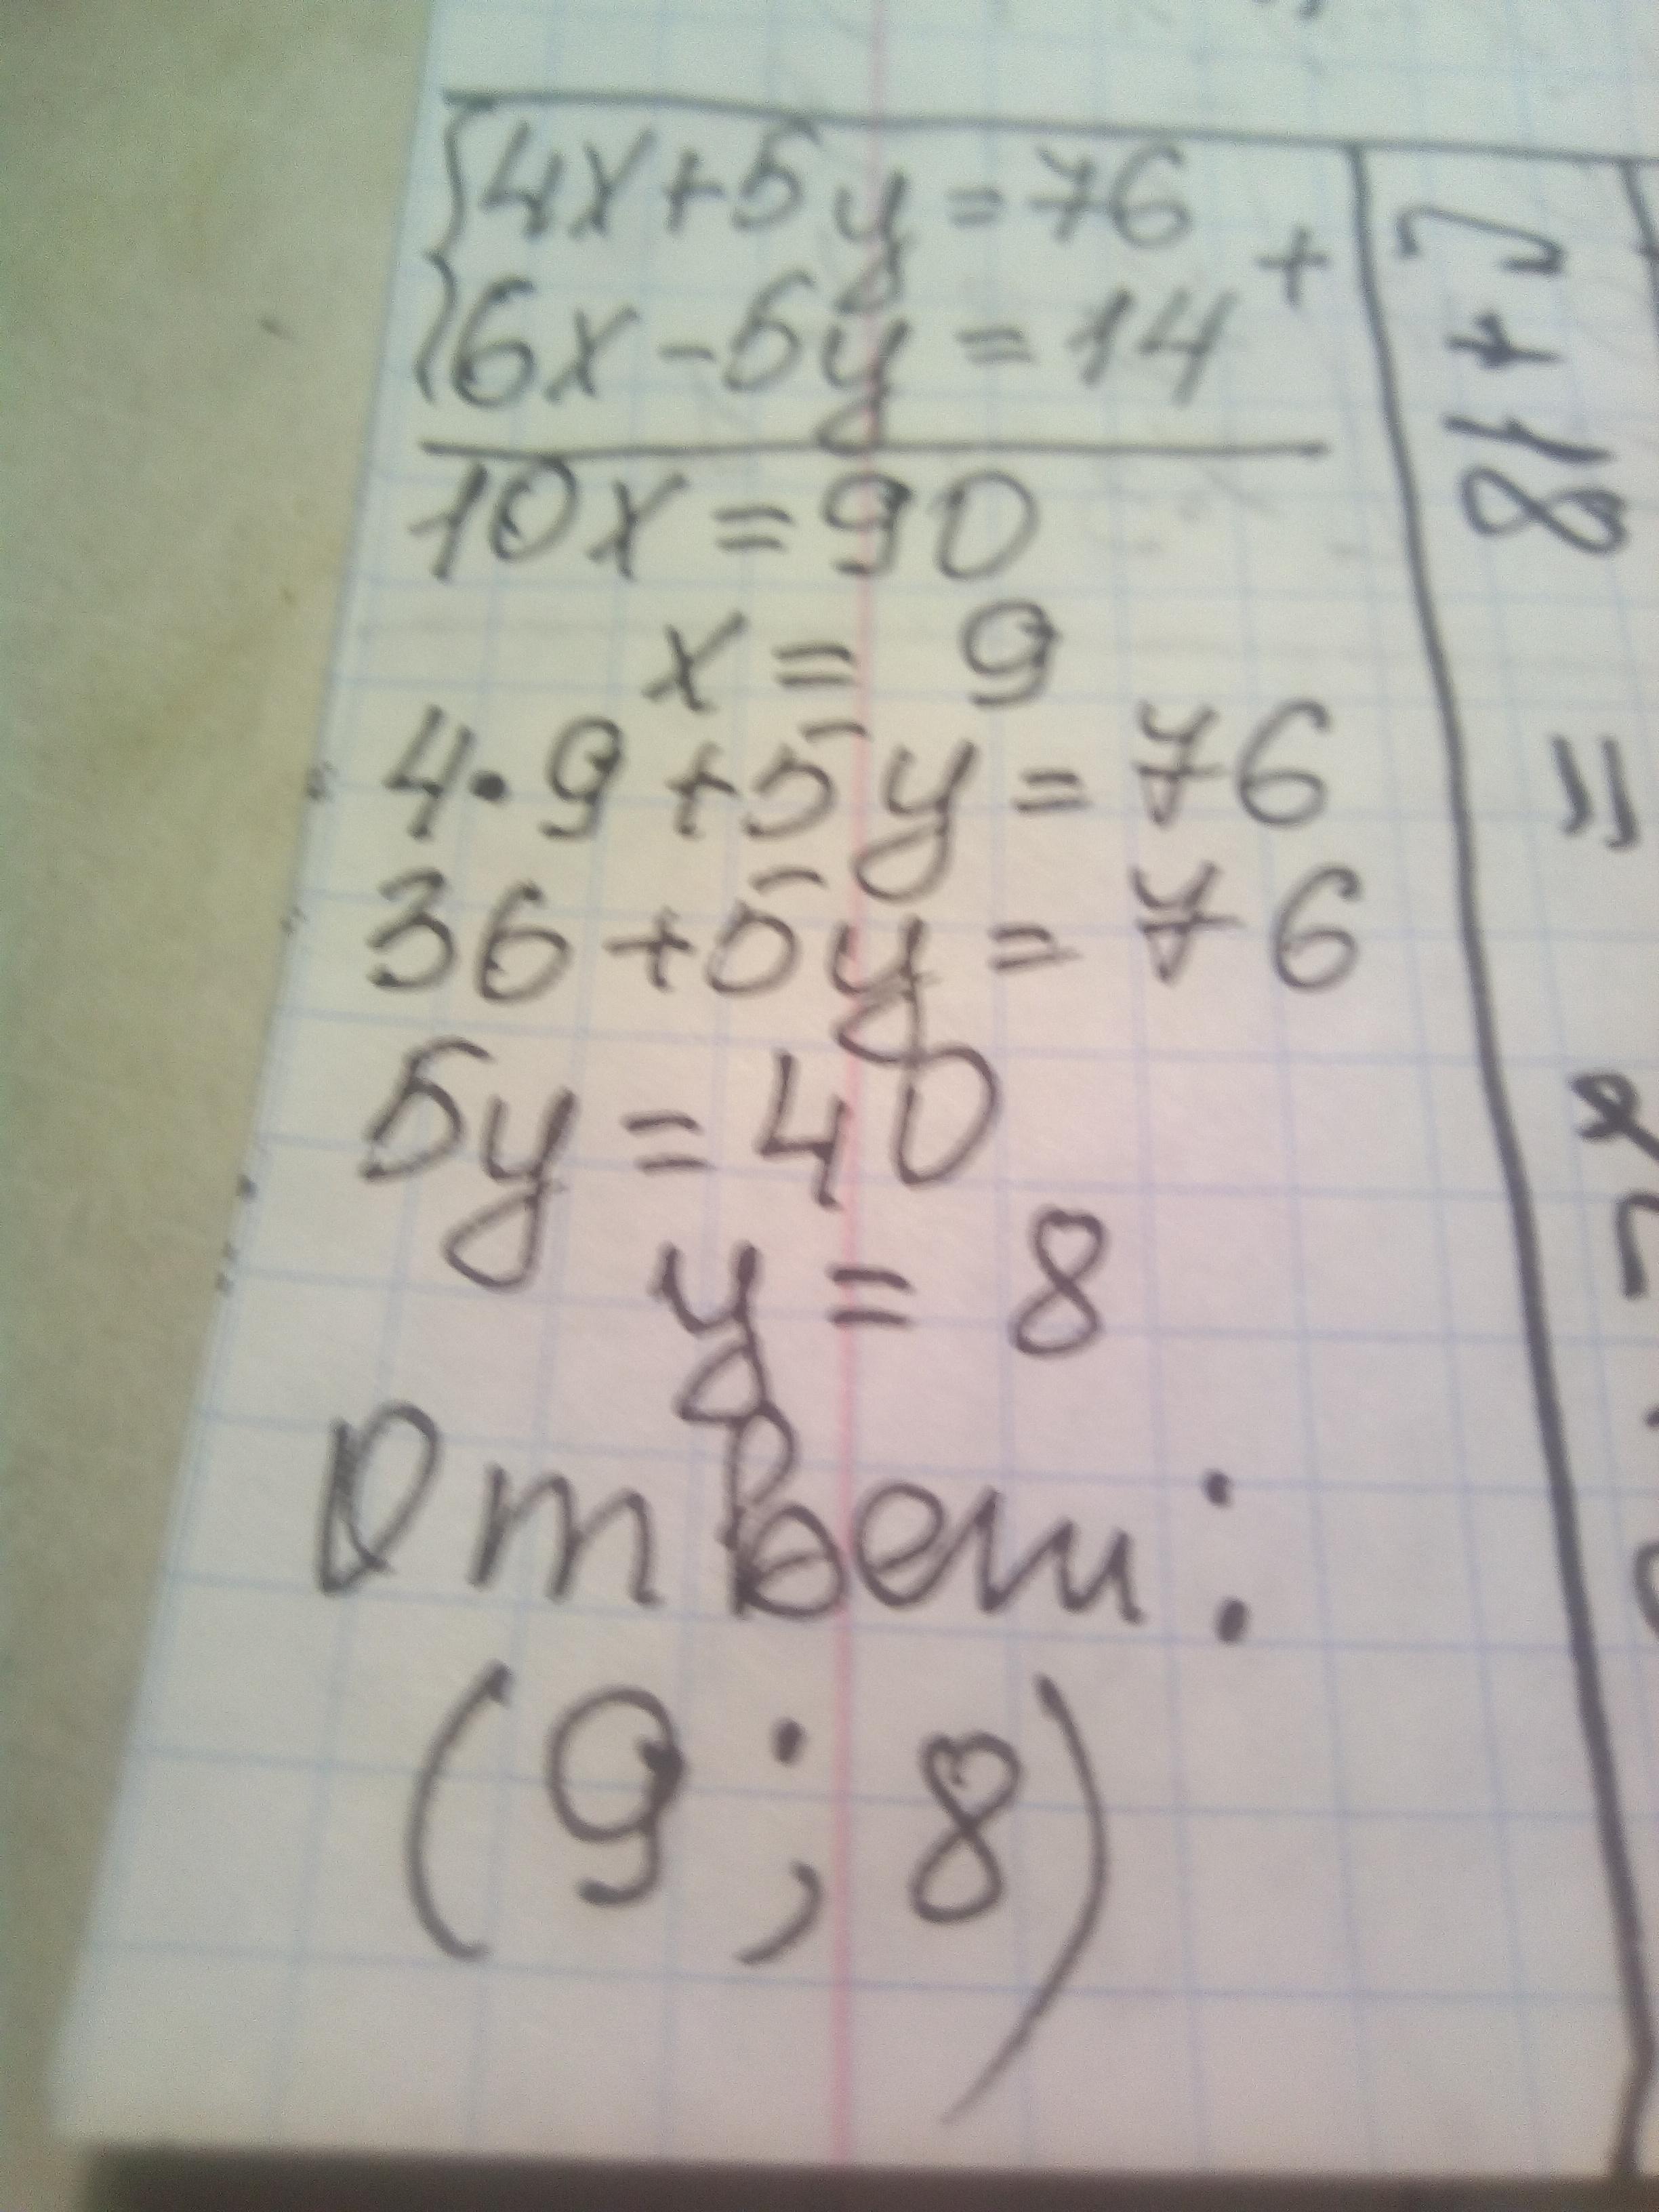 {4x+5y=76
{6x-5y=14 +
10x=90
x=9
4·9+5y=76
36+5y=76
5y=40
y=8
Ответ:
(9;8)